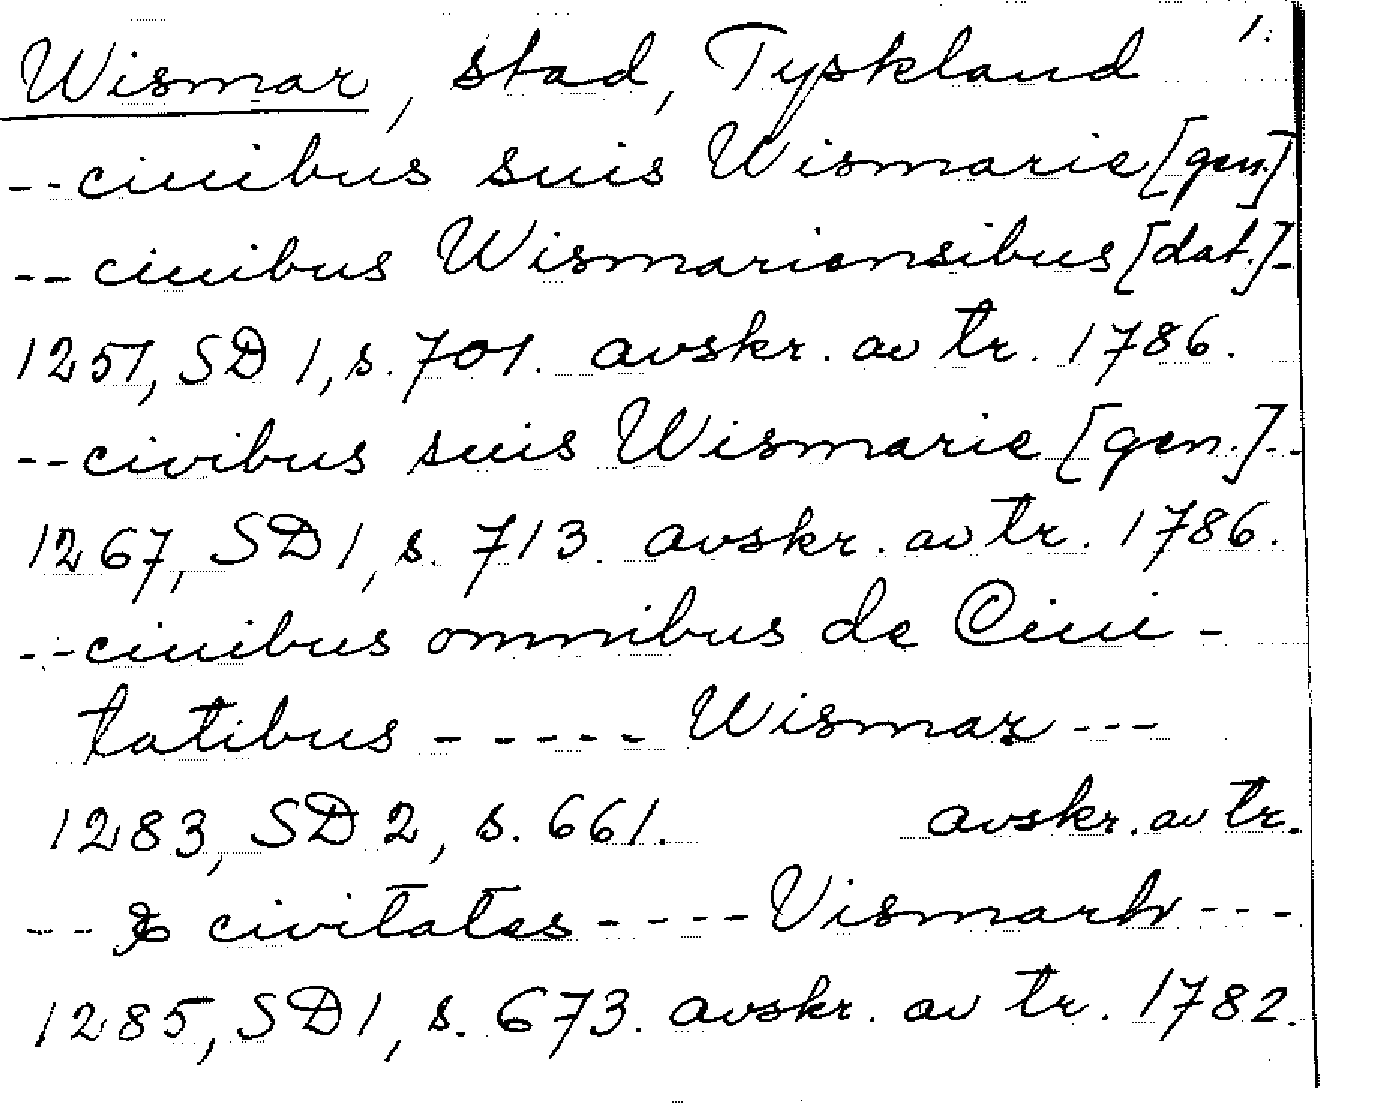 Wismar, stad, Tyskland 1:
--ciuibus suis Wismarie [gen.]
--ciuibus Wismariensibus [dat.]-
1251, SD 1, s. 701. avskr. av tr. 1786.
--civibus suis Wismarie [gen.]--
1267, SD 1, s. 713. avskr. av tr. 1786.
--ciuibus omnibus de Ciui-
tatibus ----- Wismar ---
1283, SD 2, s. 661. avskr. av tr.
--- & civitates ---- Vismarh ---
1285, SD 1, s. 673. avskr. av tr. 1782.